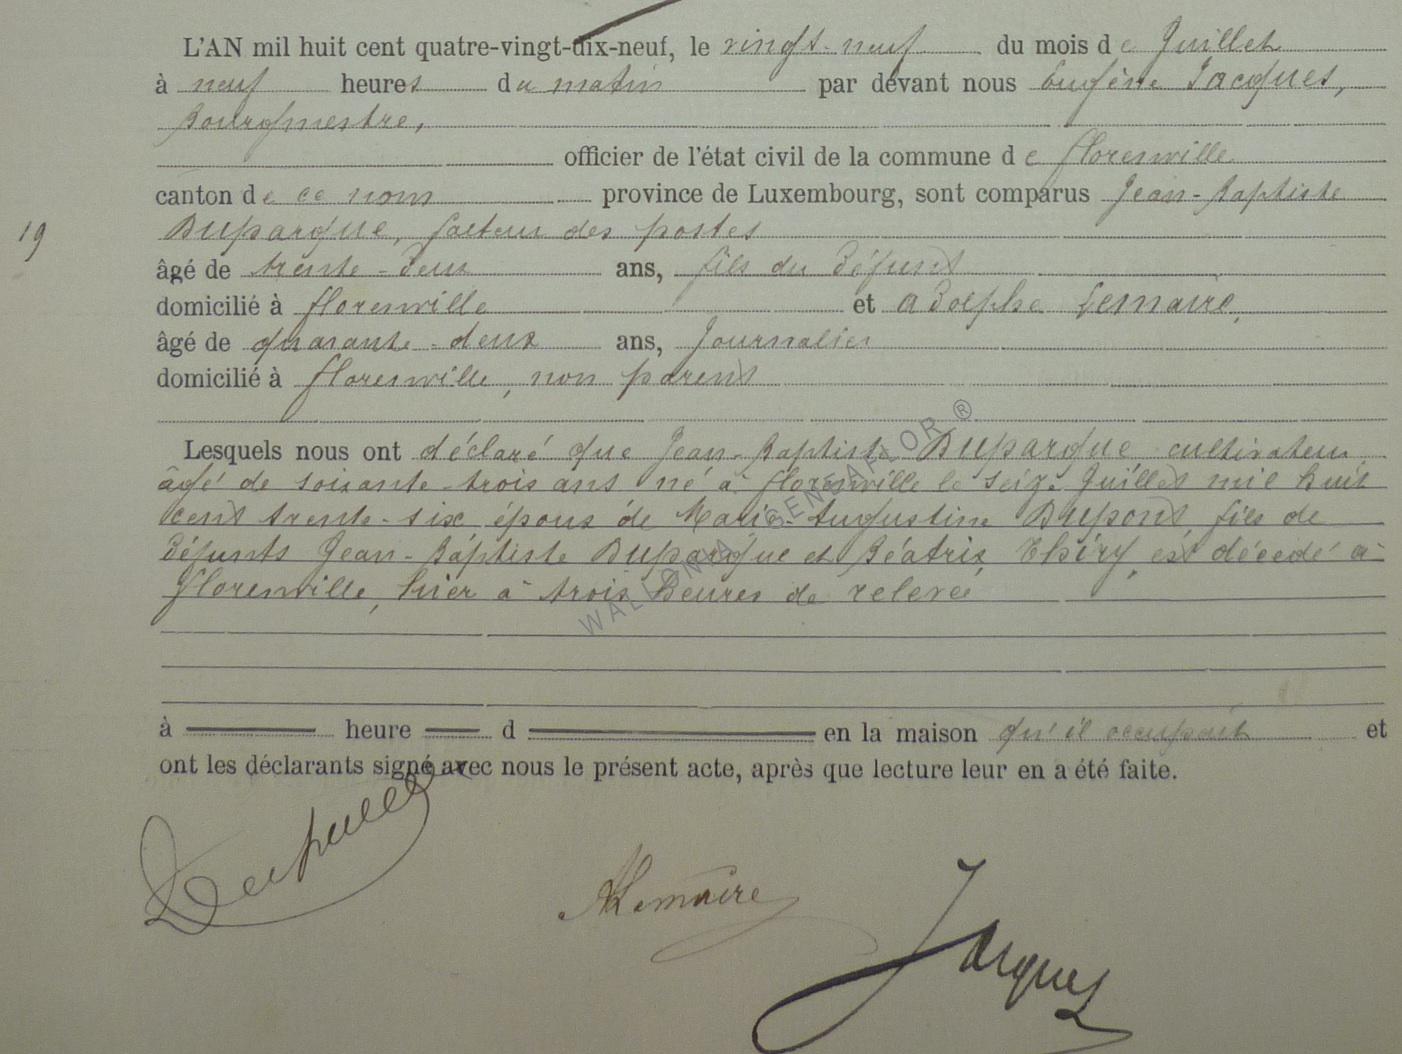 L'AN mil huit cent quatre-vingt-dix-neuf, le vingt-neuf du mois de Juillet
à neuf heures du matin par devant nous Eugène Jacques,
Bourgmestre,
officier de l'état civil de la commune de florenville
canton de ce nom province de Luxembourg, sont comparus Jean-Baptiste
19 Duparque, facteur des postes
âgé de trente-deux ans, fils du défunt
domicilié à florenville et Adolphe Lemaire,
âgé de quarante-deux ans, Journalier
domicilié à florenville, non parent
Lesquels nous ont déclaré que Jean-Baptiste Duparque cultivateur
âgé de soixante-trois ans né à florenville le seize Juillet mil huit
cent trente-six époux de Marie-Augustine Dupont fils de
défunts Jean-Baptiste Duparque et Béatrix Thiry, est décédé à
Florenville, hier à trois heures de relevée
à heure d en la maison qu'il occupait et
ont les déclarants signé avec nous le présent acte, après que lecture leur en a été faite.
ALemaire
Jacques
WALLONIA GENEAFLOR ®